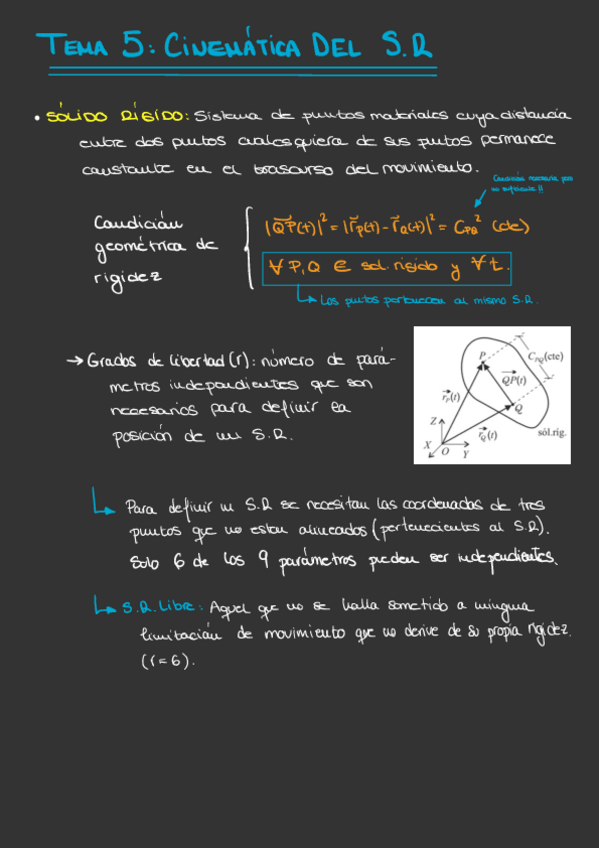 TEMA 5: CINEMÁTICA DEL S.R
• SÓLIDO RÍGIDO: Sistema de puntos materiales cuya distancia
entre dos puntos cualesquiera de sus puntos permanece
constante en el trascurso del movimiento.
Condición necesaria pero
no suficiente !!
Condición
geométrica de
rigidez
|QP(t)|² = |r_P(t) - r_Q(t)|² = C_PQ² (cte)
∀ P,Q ∈ sol. rígido y ∀ t.
Los puntos pertenecen al mismo S.R.
→ Grados de libertad (r): número de pará-
metros independientes que son
necesarios para definir la
posición de un S.R.
P
C_PQ(cte)
QP(t)
r_P(t)
Q
Z
r_Q(t)
sól.rig.
X O Y
Para definir un S.R se necesitan las coordenadas de tres
puntos que no estan alineados (pertenecientes al S.R).
Solo 6 de los 9 parámetros pueden ser independientes.
S.R. Libre: Aquel que no se halla sometido a ninguna
limitación de movimiento que no derive de su propia rigidez.
(r = 6).